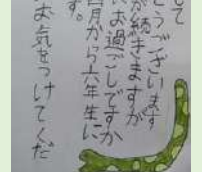 して
とうございます
が続きますが
にお過ごしですか
四月から六年生に
す。
お気をつけてくだ